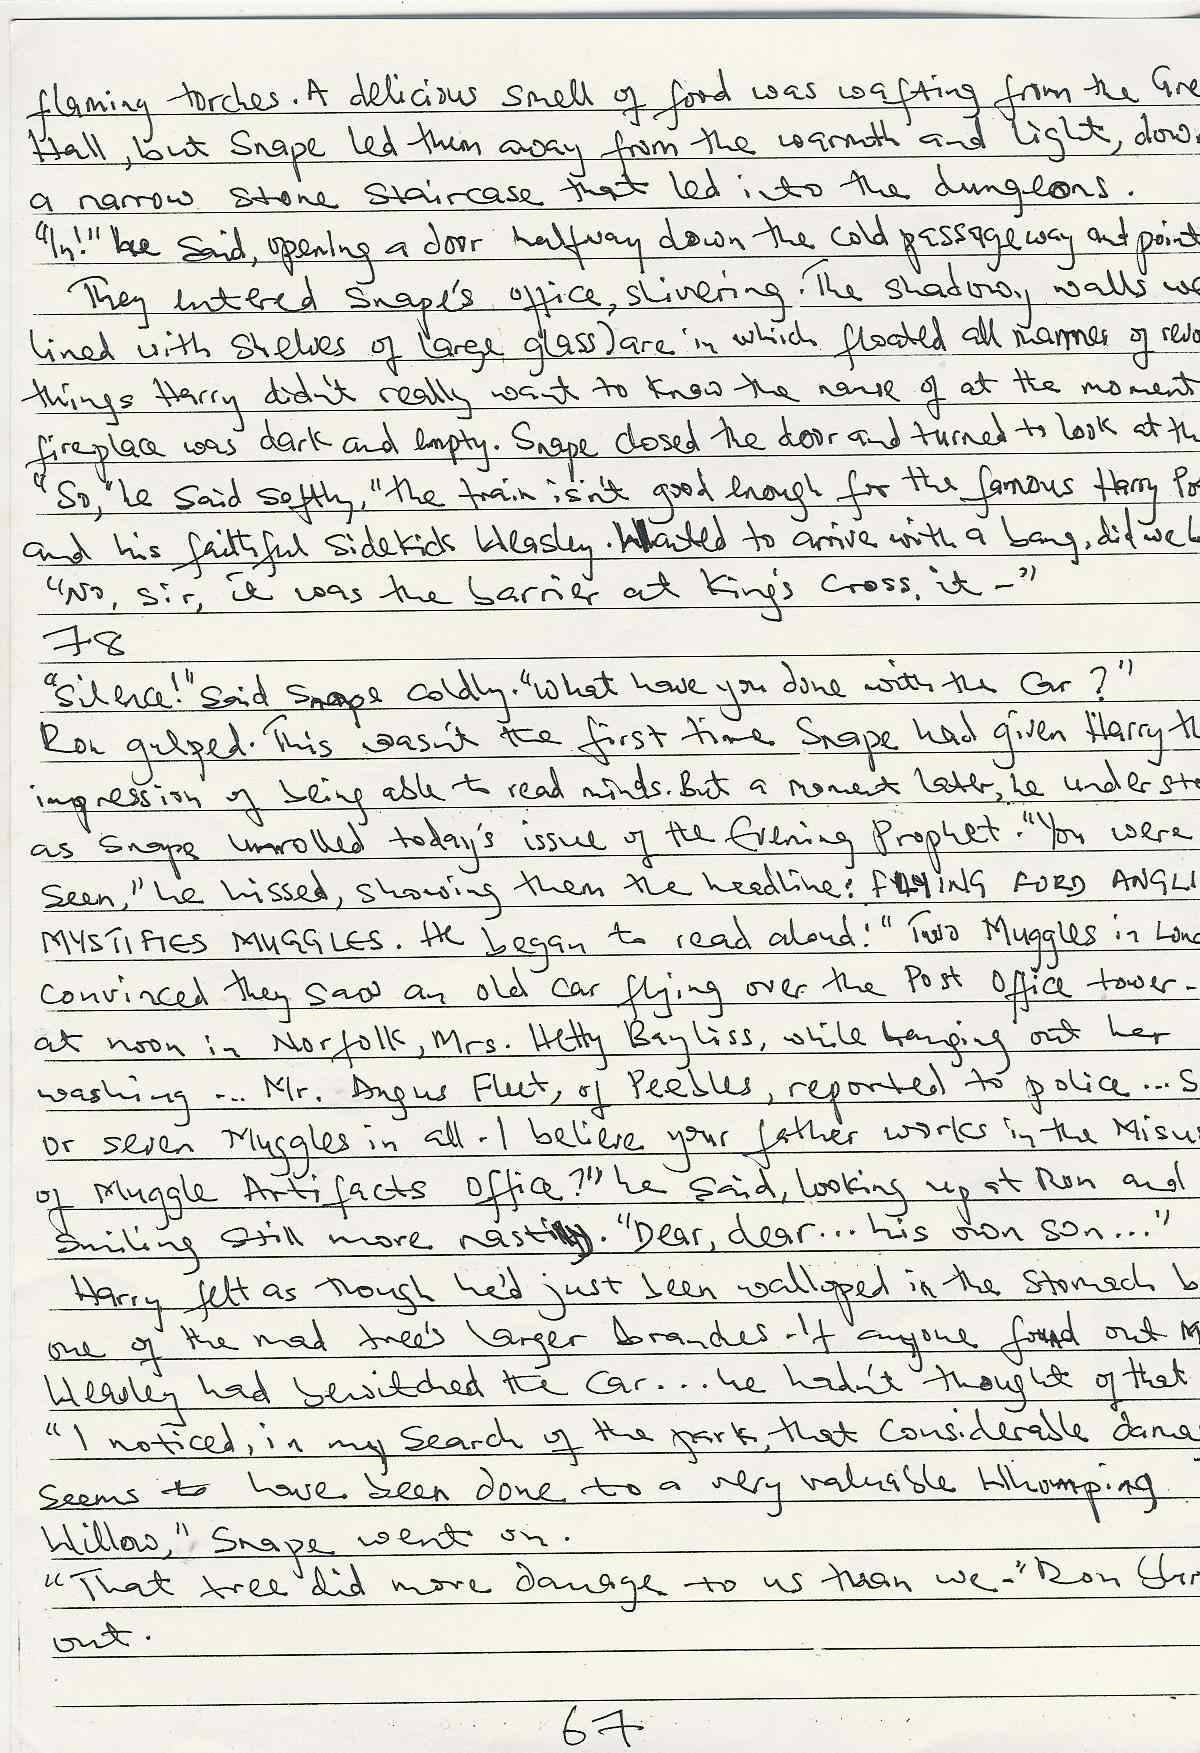 flaming torches. A delicious smell of food was wafting from the Gre
Hall, but Snape led them away from the warmth and light, down
a narrow stone staircase that led into the dungeons.
"In!" he said, opening a door halfway down the cold passageway and point
They entered Snape's office, shivering. The shadowy walls we
lined with shelves of large glass jars in which floated all manner of revo
things Harry didn't really want to know the name of at the moment
fireplace was dark and empty. Snape closed the door and turned to look at th
"So," he said softly, "the train isn't good enough for the famous Harry Po
and his faithful sidekick Weasley. Wanted to arrive with a bang, did we
"No, sir, it was the barrier at King's Cross, it -"
78
"Silence!" said Snape coldly. "What have you done with the car?"
Ron gulped. This wasn't the first time Snape had given Harry th
impression of being able to read minds. But a moment later, he understo
as Snape unrolled today's issue of the Evening Prophet. "You were
seen," he hissed, showing them the headline: FLYING FORD ANGLI
MYSTIFIES MUGGLES. He began to read aloud: "Two Muggles in Lond
convinced they saw an old car flying over the Post Office tower -
at noon in Norfolk, Mrs. Hetty Bayliss, while hanging out her
washing ... Mr. Angus Fleet, of Peebles, reported to police ... S
or seven Muggles in all. I believe your father works in the Misus
of Muggle Artifacts Office?" he said, looking up at Ron and
smiling still more nastily. "Dear, dear... his own son..."
Harry felt as though he'd just been walloped in the stomach b
one of the mad tree's larger brandes. If anyone found out M
Weasley had bewitched the car... he hadn't thought of that
"I noticed, in my search of the park, that considerable dama
seems to have been done to a very valuable Whomping
Willow," Snape went on.
"That tree did more damage to us than we -" Ron
out.
67